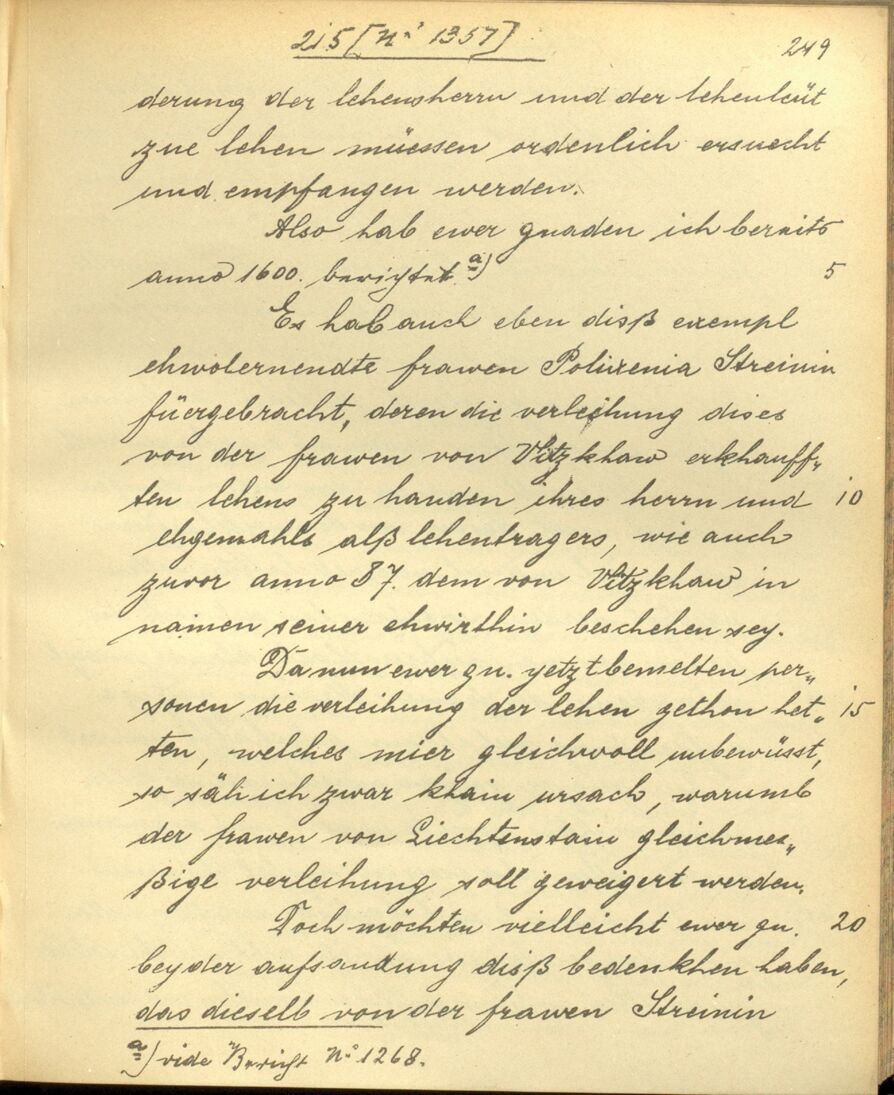 215 [No 1357]
249
derung der lehensherrn und der lehenleüt
zue lehen müessen ordenlich ersuecht
und empfangen werden.
Also hab ewer gnaden ich bereits
anno 1600. berichtet a)
5
Es hab auch eben disß exempl
ehwolernendte frawen Polixenia Streinin
füergebracht, deren die verleihung dises
von der frawen von Vitzkhaw erkhauff„
ten lehens zu handen ihres herrn und
10
ehgemahls alß lehentragers, wie auch
zuvor anno 87. dem von Vitzkhaw in
namen seiner ehwirthin beschehen sey.
Da nun ewer gn. yetztbemelten per„
sonen die verleihung der lehen gethon het„
15
ten, welches mier gleichwoll unbewüsst,
so säh ich zwar khain ursach, warumb
der frawen von Liechtenstain gleichmes„
ßige verleihung soll geweigert werden.
Doch möchten vielleicht ewer gn.
20
bey der aufsandung disß bedenkhen haben,
das dieselb von der frawen Streinin
a) vide Bericht No 1268.